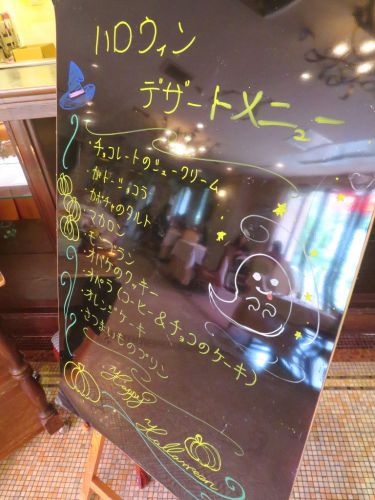 ハロウィン
デザートメニュー
・チョコレートのシュークリーム
・ガトーショコラ
・カボチャのタルト
・マカロン
・モンブラン
・オバケのクッキー
・オペラ(コーヒー&チョコのケーキ)
・オレンジケーキ
・さつまいものプリン
Happy
Halloween